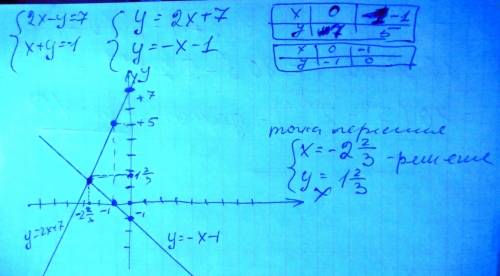 {2x-y=7
{x+y=-1
{y=2x+7
{y=-x-1
x | 0 | -1
y | 7 | 5
x | 0 | -1
y | -1 | 0
y
+7
+5
1 2/3
-2 2/3 -1
-1
x
y=2x+7
y=-x-1
точка
{x=-2 2/3
{y=1 2/3
-решение